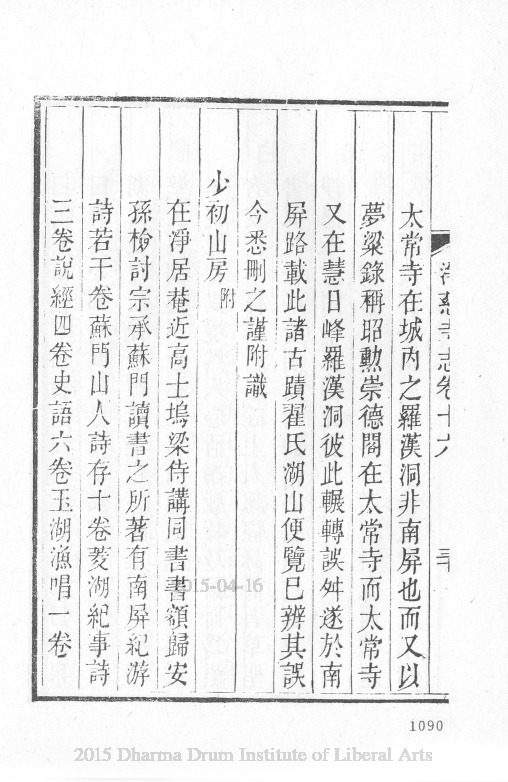 太常寺在城內之羅漢洞非南屏也而又以
夢粱錄稱昭勲崇德閣在太常寺而太常寺
又在慧日峰羅漢洞彼此輾轉誤舛遂於南
屏路載此諸古蹟翟氏湖山便覽巳辨其誤
今悉刪之謹附識
少初山房附
在淨居菴近高士塢梁侍講同書書額歸安
孫梅討宗承蘇門讀書之所著有南屏紀游
詩若干卷蘇門山人詩存十卷菱湖紀事詩
三卷說經四卷史語六卷玉湖漁唱一卷
2015-04-16
1090
2015 Dharma Drum Institute of Liberal Arts